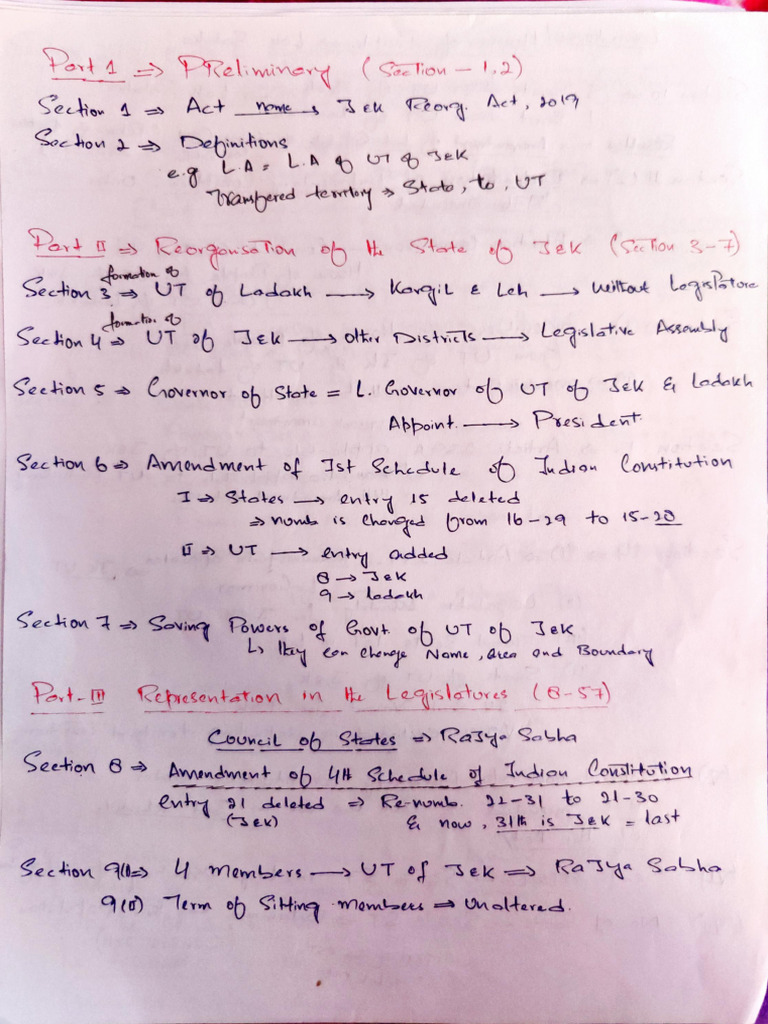 Part 1 ⇒ PReliminary (Section - 1,2)
Section 1 ⇒ Act name → J&K Reorg. Act, 2019
Section 2 ⇒ Definitions
e.g L.A = L.A of UT of J&K
Transfered territory → State, to, UT
Part II ⇒ Reorgansation of the State of J&K (Section 3-7)
formation of
Section 3 ⇒ UT of Ladakh → Kargil & Leh → Without Legislature
formation of
Section 4 ⇒ UT of J&K → Other Districts → Legislative Assembly
Section 5 ⇒ Governor of State = L. Governor of UT of J&K & Ladakh
Appoint. → President
Section 6 ⇒ Amendment of Ist Schedule of Indian Constitution
I ⇒ States → entry 15 deleted
⇒ numb is changed from 16-29 to 15-28
II ⇒ UT → entry added
8 → J&K
9 → Ladakh
Section 7 ⇒ Saving Powers of Govt. of UT of J&K
↳ they can change Name, Area and Boundary
Part-III Representation in the Legislatures (8-57)
Council of States ⇒ Rajya Sabha
Section 8 ⇒ Amendment of 4th Schedule of Indian Constitution
entry 21 deleted ⇒ Re-numb. 22-31 to 21-30
(J&K) & now, 31th is J&K = last
Section 9(I) ⇒ 4 members → UT of J&K ⇒ Rajya Sabha
9(II) Term of Sitting members ⇒ Unaltered.